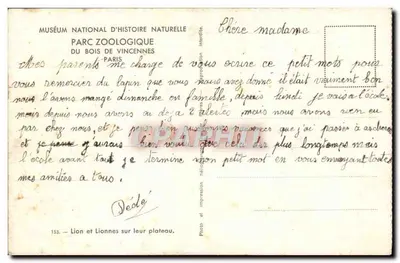 MUSÉUM NATIONAL D'HISTOIRE NATURELLE
PARC ZOOLOGIQUE
DU BOIS DE VINCENNES
PARIS
Chère madame
Mes parents me charge de vous ecrire ce petit mots pour
vous remercier du lapin que vous nous avez donné il était vraiment bon
nous l'avons mangé dimanche en famille, depuis lundi je vais a l'école
mous depuis nous avons eu deja 2 alertes mais nous avons rien eu
par chez nous, et je vacances que j'ai passer a
et je j'aurais bien voulu que cela dure plus longtemps mais
l'école avant tout je termine mon petit mot en vous envoyant toutes
mes amitiées a tous.
Dédé
153. — Lion et Lionnes sur leur plateau.